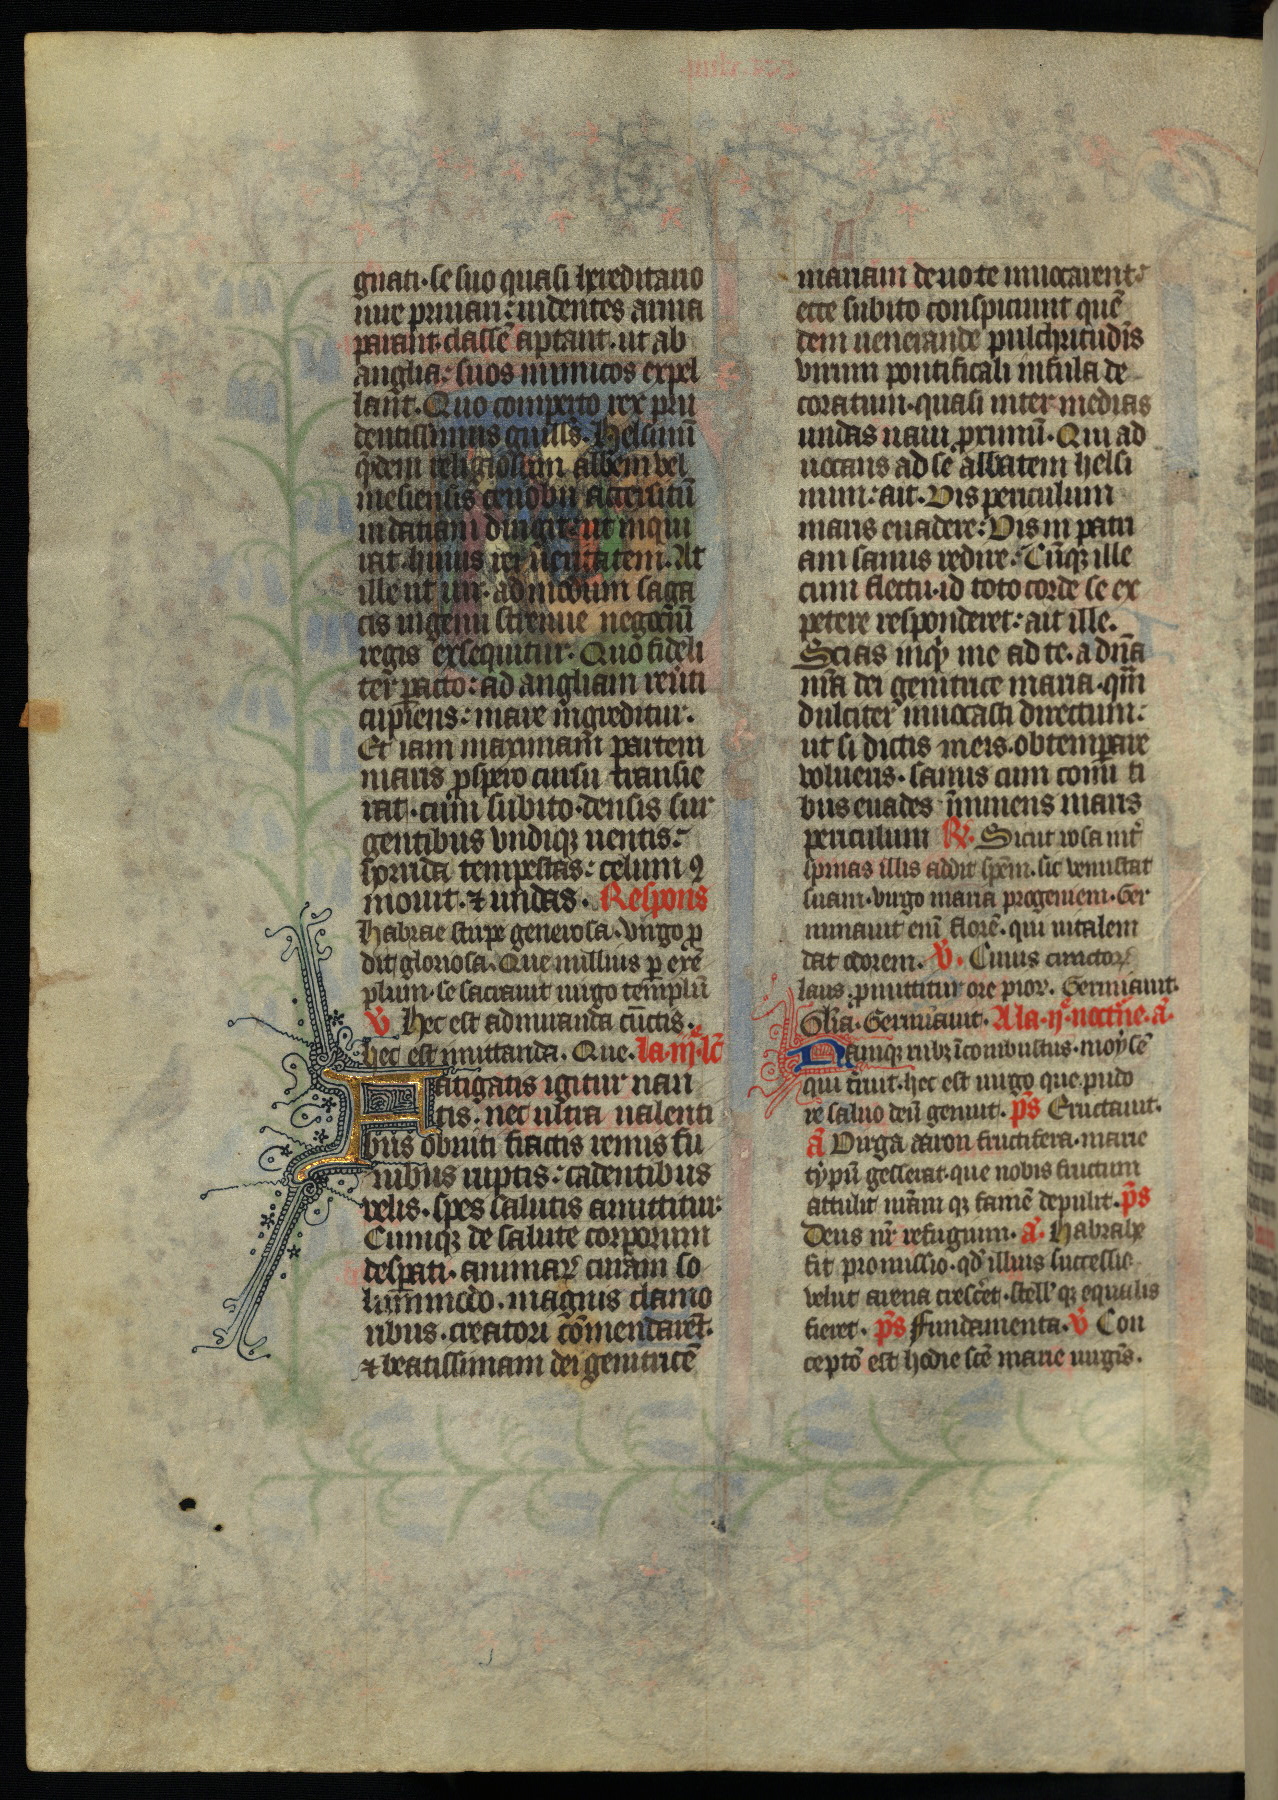 gnati·se suo quasi hereditario
iure priuari: uidentes arma
parant·classē aptant·ut ab
anglia: suos inimicos expel
lant̄. Quo comperto rex pru
dentissimus guill̄s. Helsinū
q̄dem religiosum abb̄em vel
mesiensis cenobii accersitū
in datiam dirigit: ut inqui
rat huius rei ueritatem. At
ille ut uir· ad modum saga
cis ingenii strenue negociū
regis exsequitur. Quo fideli
ter pacto: ad angliam reūti
cupiens: mare ingreditur.
Et iam maximam partem
maris ꝓspero cursu transie
rat·cum subito·densis sur
gentibus vndiqꝫ uentis:
horrida tempestas: celum ꝯ
mouit·⁊ undas. Respons
Habrae stirpe generosa·virgo ꝓ
dit gloriosa. Que nullius ꝑ exē
plum·se sacrauit uirgo templū
v̄. Hec est admiranda cūctis.
hec est imitanda. Que. la·iij·lc̄
Fatigatis igitur nau
tis. nec ultra ualenti
bus obniti fractis remis fu
nibus ruptis: cadentibus
velis·spes salutis amittitur·
Cumqꝫ de salute corporum
desperati·animarꝝ curam so
lūmmodo·magnis clamo
ribus·creatori cōmendaret̄·
⁊ beatissimam dei genitricē
mariam deuote inuocarent:
ecce subito conspiciunt quē
dem uenerande pulchritudīs
virum pontificali infula de
coratum·quasi inter medias
undas naui ꝓximū. Qui ad
uocans ad se abbatem helsi
num: ait. Vis periculum
maris euadere: Vis in patri
am sanus redire: Cūqꝫ ille
cum fletu·id toto corde se ex
petere responderet: ait ille.
Scias inqͥ me ad te·a dn̄a
nr̄a dei genitrice maria·qm̄
dulciter inuocasti directum:
ut si dictis meis·obtemperare
volueris·sanus cum comi ti
bus euades īminens maris
periculum R̄. Sicut rosa int̄
spinas illis addit spēm·sic venustat
suam·virgo maria progeniem·Ger
minauit enī florē·qui uitalem
dat odorem. v̄. Cuius
laus ꝓmittitur ore pior̄. Germinauit.
Glīa·Germinauit·A la·ij·nocturne·ā·
Namqꝫ rubꝫ īcombustus·moysē
qui truit·hec est uirgo que pudo
re saluo deū genuit. p̄s Eructauit·
ā Virga aaron fructifera·marie
tẏpū gesserat·que nobis fructum
attulit mām qꝫ famē depulit·p̄s
Deus nr̄ refugium·ā. Habrahe
fit promissio·qd̄ illius successio
velut arena cresc̄et·stell' qꝫ equalis
fieret·p̄s Fundamenta·v̄ Con
ceptō est hodie scē marie uirgīs.